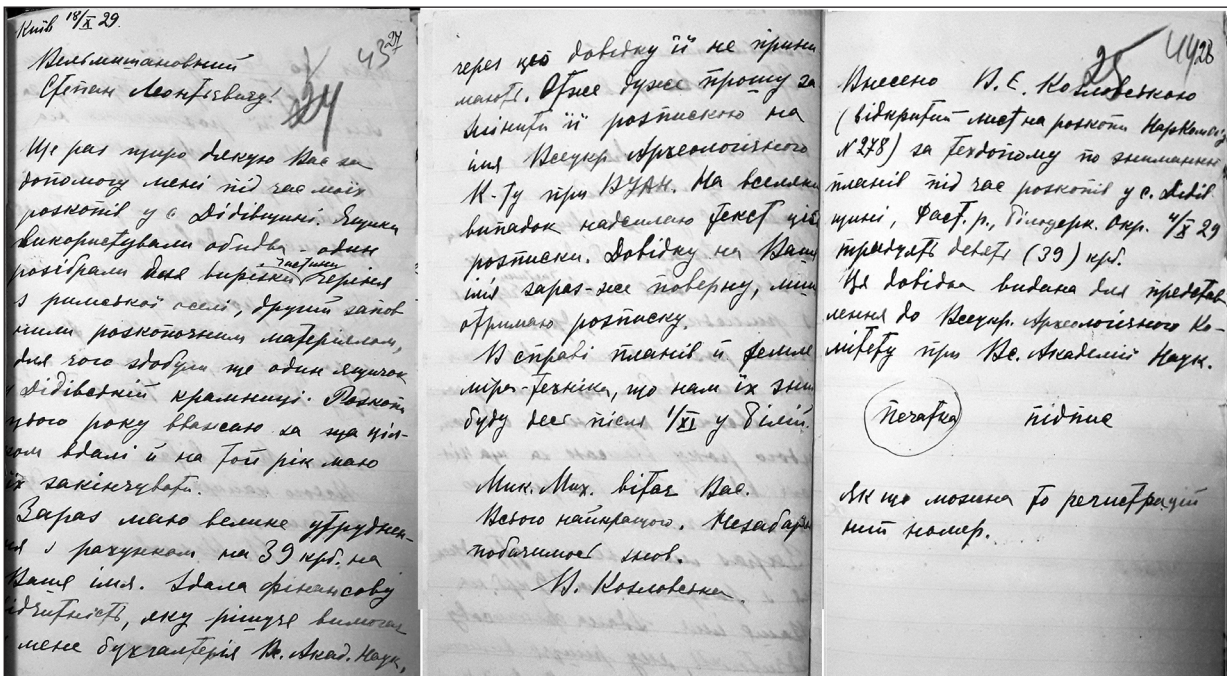 Київ 18/X 29.
43 27
Вельмишановний
Степан Леонтієвичу!
24
Ще раз щиро дякую Вас за
допомогу мені під час моїх
розкопів у с. Дідівщині. Ящики
використували обидва – один
розібрали для вирізки частини череня
з римської оселі, другий запов
нили розкопочним матеріялом,
для чого здобули ще один ящичок
у Дідівській крамниці. Розкопи
цього року вважаю за ціл-
ком вдалі й на той рік маю
їх закінчувати.
Зараз маю велике утруднен-
ня з рахунком на 39 крб. на
Ваше імя. Здала фінансову
відчитність, яку рішуче вимогає
мене бухгалтерія Вс. Акад. Наук,
через цю довідку її не прийи
мають. Отже дуже прошу за
мінити її розпискою на
імя Всеукр. Археологічного
К-ту при ВУАН. На вселяки
випадок надсилаю текст ціє
розписки. Довідку на Ваше
імя зараз-же поверну, лиш
отримаю розписку.
В справі планів й землемі
міра-техніка, що нам їх зні
буду десь після 1/XI у Білій.
Мик. Мих. вітає Вас.
Всього найкращого. Незабаром
побачимось знов.
В. Козловська.
25 44 28
Внесено В. Є. Козловською
(відкритий лист на розкопи НарКомОсу
N 278) за техдопомогу по зніманню
планів під час розкопів у с. Дідів
щині, Фаст. р., Білоцерк. Окр. 4/X 29
тридцять девять (39) крб.
Ця довідка видана для представ
лення до Всеукр. Археологічного Ко-
мітету при Вс. Академії Наук.
печатка підпис
Якщо можна то регистрацій
ний номер.